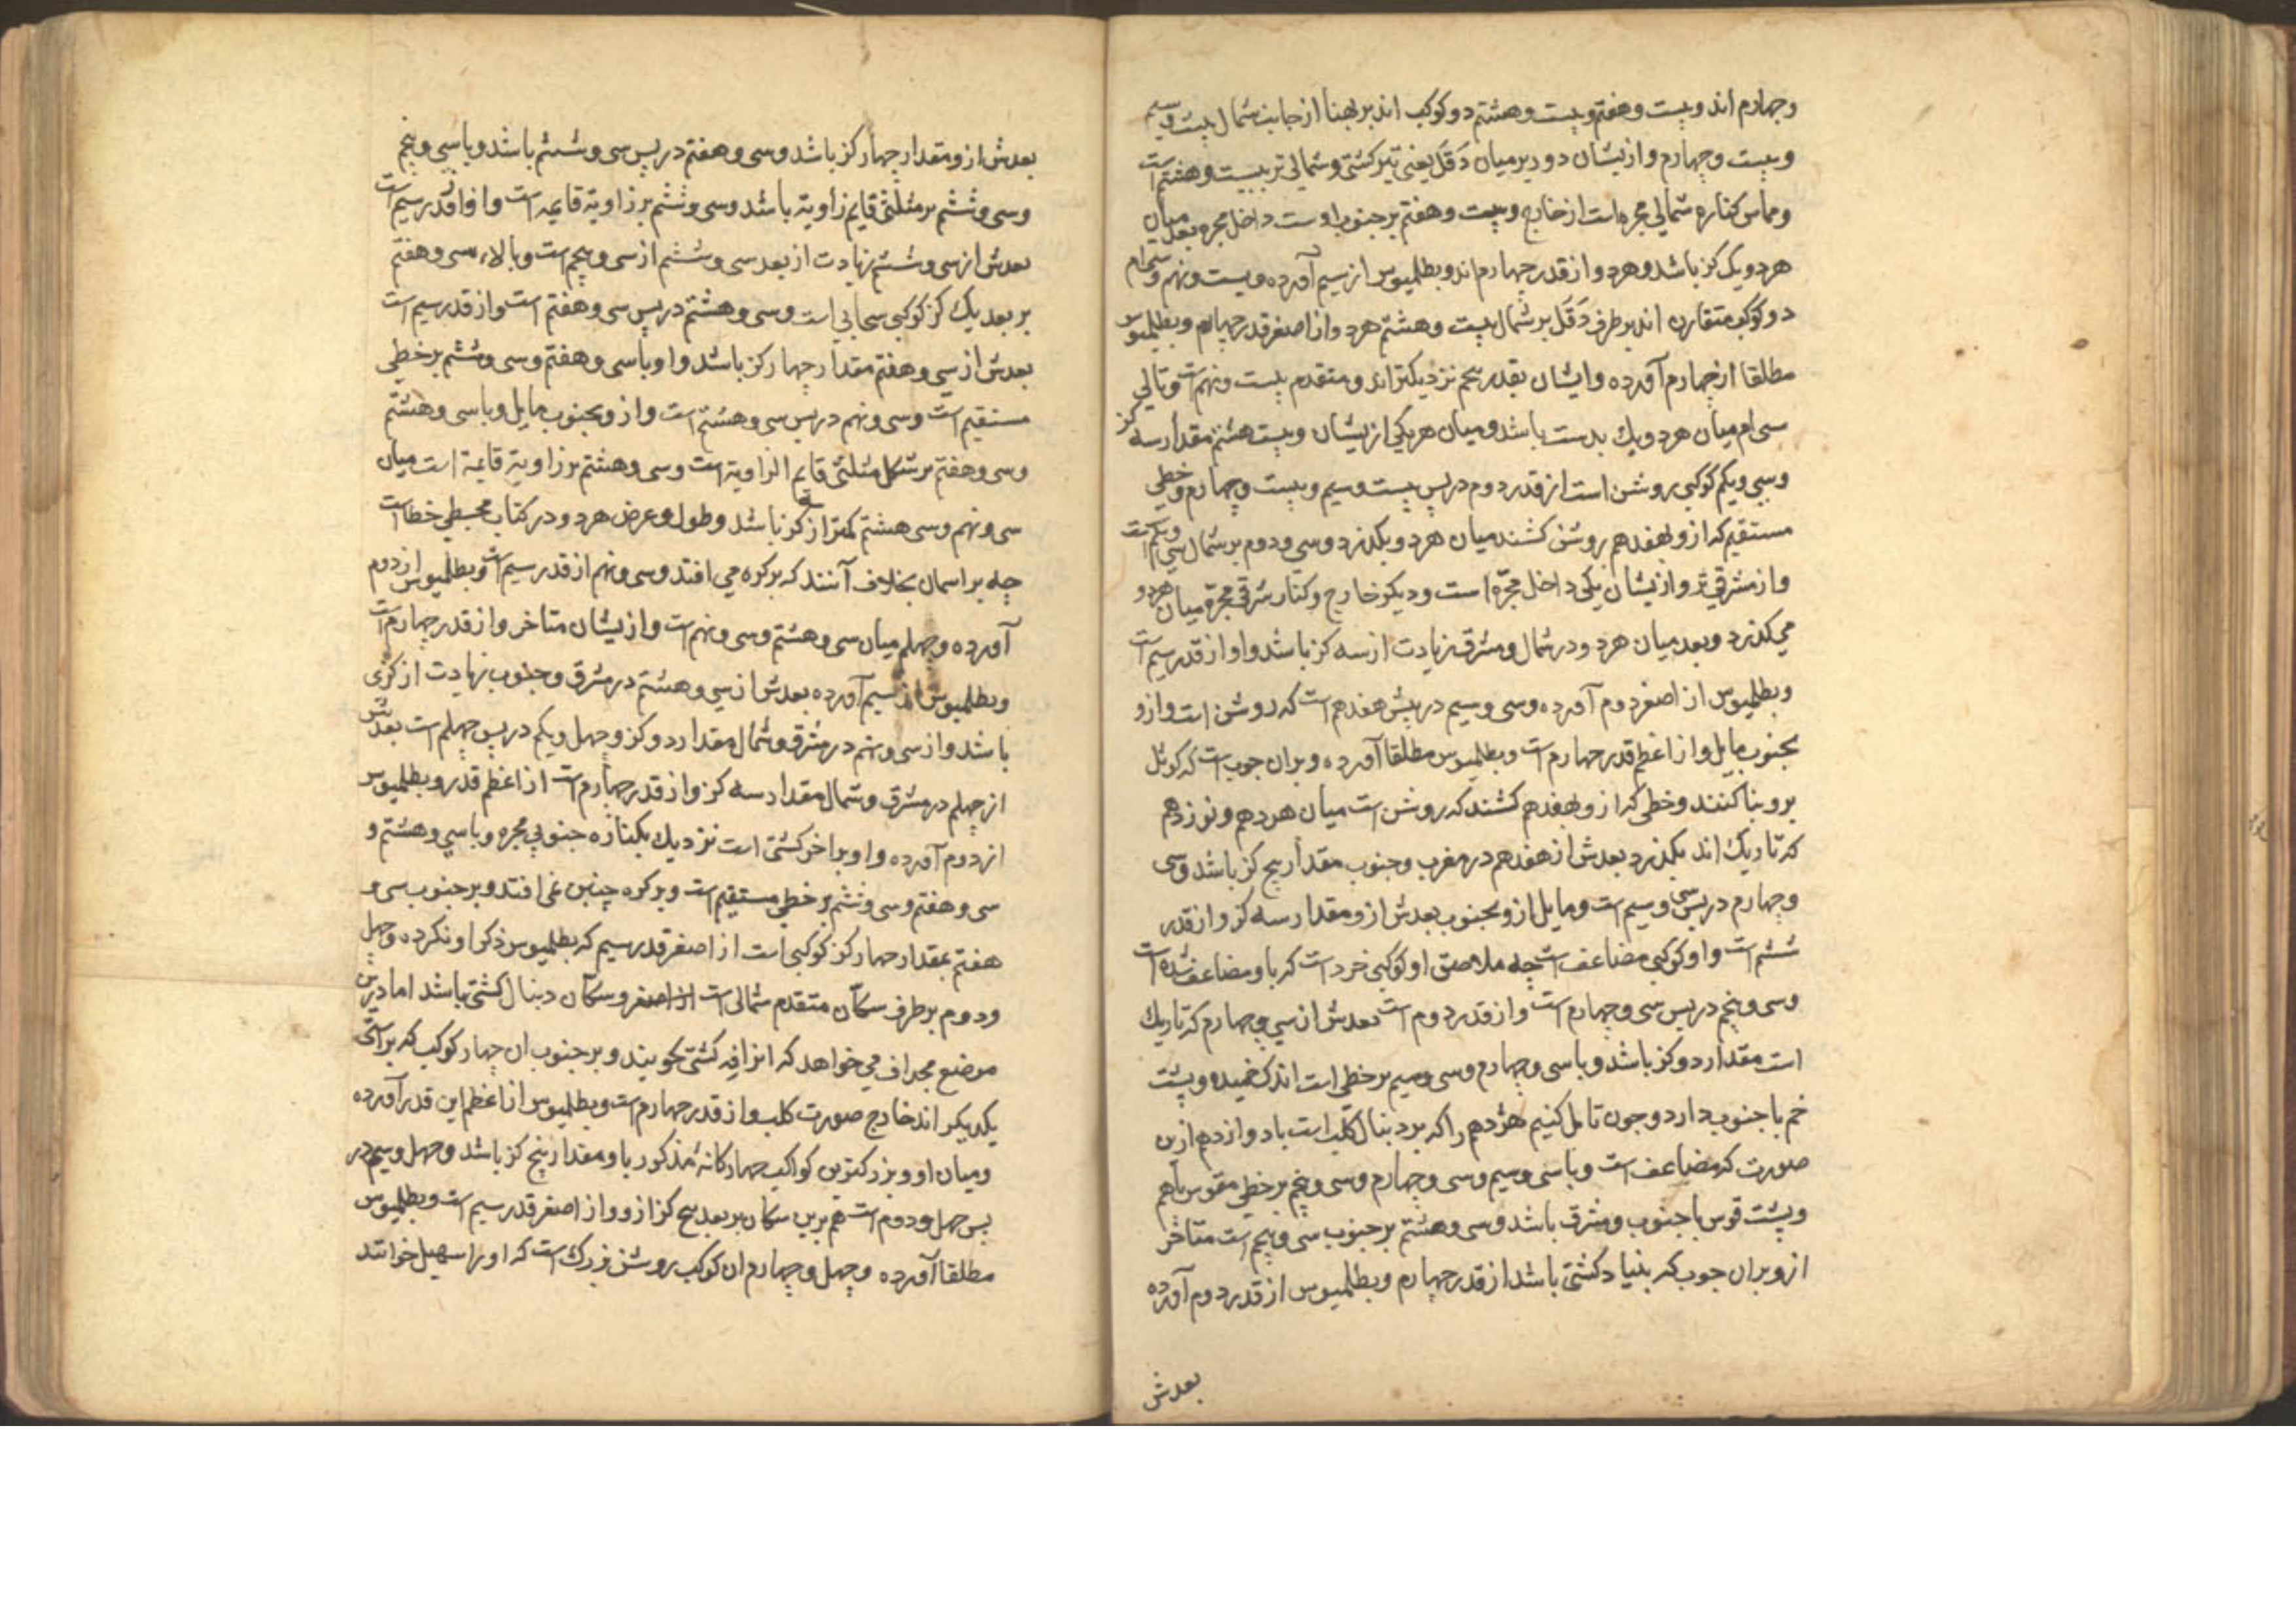 وچهارم اند وبیست وهفتم وبیست وهشتم دو کوکب اند بر پهنا از جانب شمال بیست وسیم
وبیست وچهارم وازیشان دو دیر میان دَقَل یعنی تیر کشتی وشمالی تر بیست وهشتم است
ومماس کناره شمالی مجره است از خارج وبیست وهفتم بر جنوب اوست داخل مجره بعد میان
هر دو یک کز باشد وهر دو از قدر چهارم اند وبطلمیوس از سیم آورده وبیست ونهم وسی ام
دو کوکب متقارن اند بر طرف دَقَل بر شمال بیست وهشتم هر دو از اصغر قدر چهارم وبطلمیوس
مطلقا از چهارم آورده وایشان بقدر پنجم نزدیکتر اند ومتقدم بیست ونهم است وتالی
سی ام میان هر دو یک بدست باشد ومیان هر یکی ازیشان وبیست هشتم مقدار سه کز
وسی ویکم کوکبی روشن است از قدر دوم در پس بیست وسیم وبیست وچهارم وخطی
مستقیم که ازو بهفدهم روشن کشند میان هر دو بکذرد وسی ودوم بر شمال سی ویکم است
واز مشرقی تر وازیشان یکی داخل مجرّه است ودیکر خارج وکنار شرقی مجرّه میان هر دو
می کذرد وبعد میان هر دو در شمال ومشرق زیادت از سه کز باشد واو از قدر سیم است
وبطلمیوس از اصغر دوم آورده وسی وسیم در پیش هفدهم است که روشن است وازو
بجنوب مایل واز اعظم قدر چهارم است وبطلمیوس مطلقا آورده وبران جوب است که کوثل
برو بنا کنند وخطی که ازو بهفدهم کشند که روشن است میان هردهم ونوزدهم
که تاریک اند بکذرد بعدش از هفدهم در مغرب وجنوب مقدار پنج کز باشد وسی
وچهارم در پس سی وسیم است ومایل ازو بجنوب بعدش ازو مقدار سه کز واز قدر
ششم است واو کوکبی مضاعف است چه ملاصق او کوکبی خرد است که باو مضاعف شده است
وسی وپنجم در پس سی وچهارم است واز قدر دوم است بعدش از سی وچهارم که تاریک
است مقدار دو کز باشد وبا سی وچهارم وسی وسیم بر خطی است اندک خمیده وپشت
خم با جنوب دارد وجون تامل کنیم هژدهم را که بر دنبال کلب است با دوازدهم ازین
صورت که مضاعف است وبا سی وسیم وسی وچهارم وسی وپنجم بر خطی مقوس باهم
وپشت قوس با جنوب ومشرق باشد وسی وهشتم بر جنوب سی وپنجم است متاخر
ازو بران جوب که بنیاد کشتی باشد از قدر چهارم وبطلمیوس از قدر دوم آورده
بعدش
بعدش ازو مقدار چهار کز باشد وسی وهفتم در پس سی وششم باشد وبا سی وپنجم
وسی وششم بر مثلثی قایم زاویة باشد وسی وششم بر زاویة قایمه است واو از قدر سیم است
بعدش از سی وششم زیادت از بعد سی وششم از سی وپنجم است وبالاء سی وهفتم
بر بعد یک کز کوکبی سحابی است وسی وهشتم در پس سی وهفتم است واز قدر سیم است
بعدش از سی وهفتم مقدار چهار کز باشد واو با سی وهفتم وسی وششم بر خطی
مستقیم است وسی ونهم در پس سی وهشتم است وازو بجنوب مایل وبا سی وهشتم
وسی وهفتم بر شکل مثلثی قایم الزاویة است وسی وهشتم بر زاویة قایمة است میان
سی ونهم وسی هشتم کمتر از کز باشد وطول وعرض هر دو در کتاب مجسطی خطا است
چه بر اسمان بخلاف آنند که بر کره می افتد وسی ونهم از قدر سیم است وبطلمیوس از دوم
آورده وچهلم میان سی وهشتم وسی ونهم است وازیشان متاخر واز قدر چهارم است
وبطلمیوس از سیم آورده بعدش از سی وهشتم در مشرق وجنوب زیادت از کزی
باشد واز سی ونهم در مشرق وشمال مقدار دو کز وچهل ویکم در پس چهلم است بعدش
از چهلم در مشرق وشمال مقدار سه کز واز قدر چهارم است از اعظم قدر وبطلمیوس
از دوم آورده واو بر اخر کشتی است نزدیک بکناره جنوبی مجره وبا سی وهشتم و
سی وهفتم وسی وششم بر خطی مستقیم است وبر کره چنین نمی افتد وبر جنوب سی و
هفتم بمقدار چهار کز کوکبی است از اصغر قدر سیم که بطلمیوس ذکر او نکرده وچهل
ودوم بر طرف سکّان متقدم شمالی است از اصغر وسکّان دنبال کشتی باشد اما درین
موضع مجراف می خواهد که انرا فِه کشتی کویند وبر جنوب ان چهار کوکب که بر استقامت
یکدیکر اند خارج صورت کلب واز قدر چهارم است وبطلمیوس از اعظم این قدر آورده
ومیان او وبزرکترین کواکب چهارکانهٔ مذکور باو مقدار پنج کز باشد وچهل وسیم در
پس چهل ودوم است هم برین سکان بر بعد پنج کز ازو واز اصغر قدر سیم است وبطلمیوس
مطلقا آورده وچهل وچهارم ان کوکب روشن بزرک است که او را سهیل خوانند